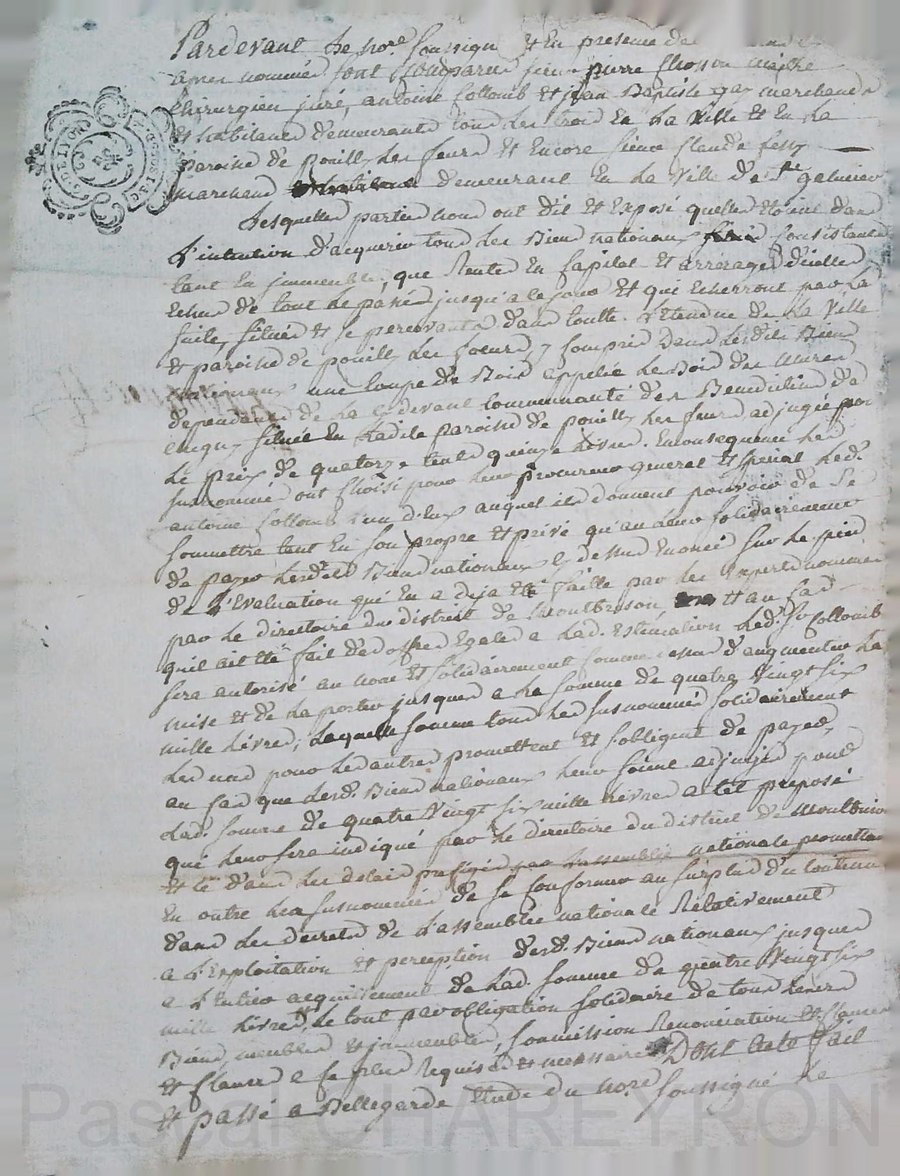 Pardevant le nore soussigné et en presence de
apres nommés sont comparus sieurs pierre maitre
chirurgien juré, antoine Collomb et jean Baptiste gay marchands
et habitans demeurants tous les trois en la ville et en la
paroisse de pouilly les feurs et encore sieur claude
marchand demeurant en la ville de st galmier
Lesquelles parties nous ont dit et exposé quelles etoient dans
l'intention d'acquerir tous les Biens nationaux consistants
tant en jmmeubles, que Rentes en capital et arrerages d'icelles
Echus de tout le passé jusqu'a ce jour et qui Echerront par la
suite, situés et se percevants dans toutte l'etendue de la ville
et paroisse de pouilly les feurs, y compris dans lesdits Biens
nationaux une coupe de Bois appellée le Bois des mures
dependant de la cy devant communauté des Benedictins de
situés en ladite paroisse de pouilly les feurs adjugée pour
le prix de quatorze cent quinze Livres. En consequence les
susnommés ont choisi pour leur procureur general et special led.
antoine Collomb l'un d'eux auquel ils donnent pouvoir de se
soumettre tant en son propre et privé qu'au leur solidairement
de payer lesdts Biens nationaux cy dessus enoncés sur le pied
de l'Evaluation qui en a deja eté faitte par les experts nommés
par le directoire du district de montbrison, et au cas
qu'il ait eté fait des offres Egales a lad. Estimation led. sr Collomb
sera autorisé au nom et solidairement comme cy dessus d'augmenter la
mise et de la porter jusques a la somme de quatre vingt six
mille livres, laquelle somme tous les susnommés solidairement
les uns pour les autres promettent et s'obligent de payer
au cas que lesd. Biens nationaux leur soient adjugés pour
lad. somme de quatre vingt six mille livres a tel preposé
qui leur sera indiqué par le directoire du district de montbrison
et ce dans les delais prefigés par l'assemblée nationale promettant
En outre les susnommés de se conformer au surplus du contenu
dans les decrets de l'assemblée nationale Relativement
a l'Exploitation et perception desd. Biens nationaux jusques
a l'entier acquittement de lad. somme de quatre vingt six
mille livres, le tout par obligation solidaire de tous leurs
Biens, meubles et jmmeubles, soumission Renonciation et clauses
et clauses a ce plus Requises et necessaires Dont acte fait
et passé a Bellegarde etude du nore soussigné le
Pascal CHAREYRON